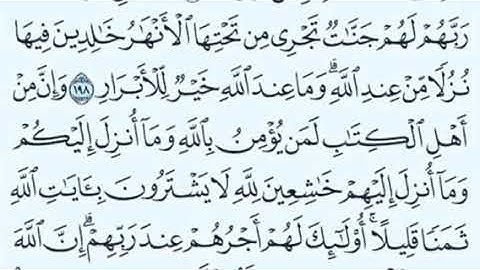 رَبَّهُمْ لَهُمْ جَنَّٰتٌ تَجْرِى مِن تَحْتِهَا ٱلْأَنْهَٰرُ خَٰلِدِينَ فِيهَا
نُزُلًا مِّنْ عِندِ ٱللَّهِ ۗ وَمَا عِندَ ٱللَّهِ خَيْرٌ لِّلْأَبْرَارِ ١٩٨ وَإِنَّ مِنْ
أَهْلِ ٱلْكِتَٰبِ لَمَن يُؤْمِنُ بِٱللَّهِ وَمَآ أُنزِلَ إِلَيْكُمْ
وَمَآ أُنزِلَ إِلَيْهِمْ خَٰشِعِينَ لِلَّهِ لَا يَشْتَرُونَ بِـَٔايَٰتِ ٱللَّهِ
ثَمَنًا قَلِيلًا ۗ أُو۟لَٰٓئِكَ لَهُمْ أَجْرُهُمْ عِندَ رَبِّهِمْ ۗ إِنَّ ٱللَّهَ